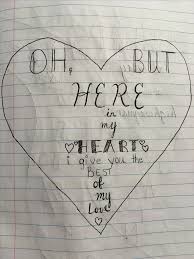 OH, BUT
HERE
in
my
HEART
i give you the
BEST
of
my
Love